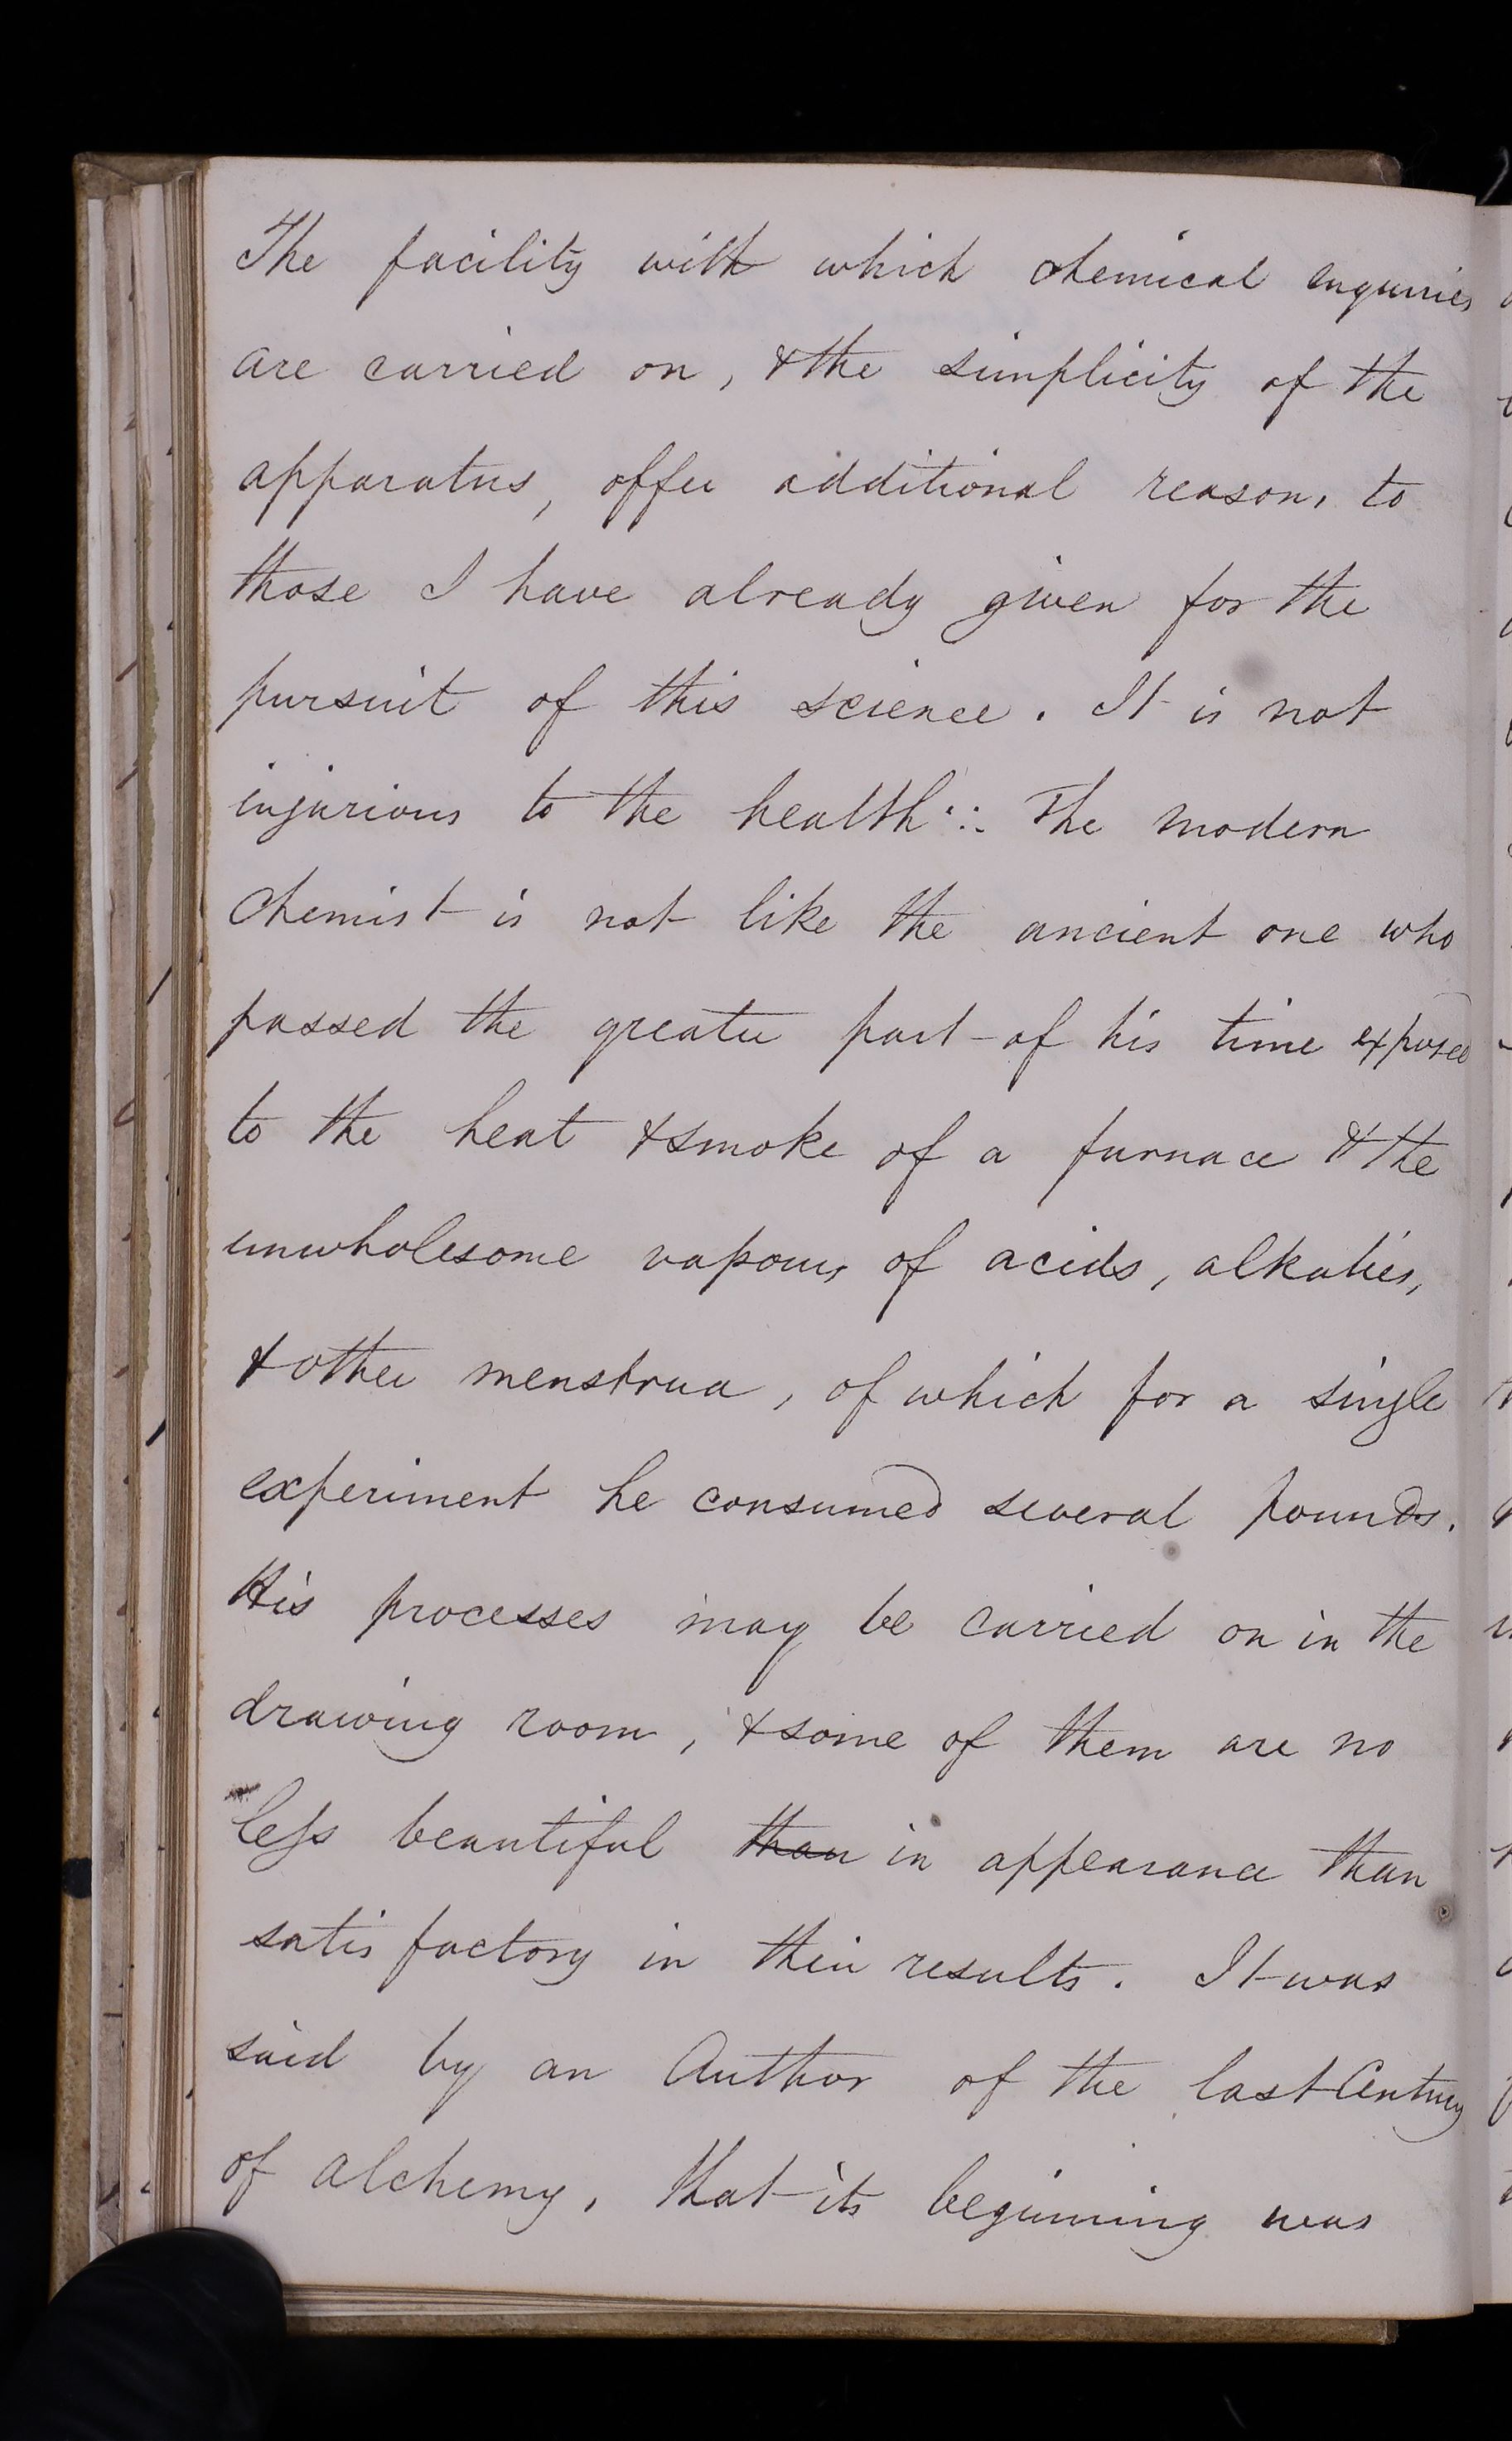 The facility with which chemical enquiries
are carried on, & the simplicity of the
apparatus, offer additional reasons to
those I have already given for the
pursuit of this science. It is not
injurious to the health ∵ The modern
chemist is not like the ancient one who
passed the greater part of his time exposed
to the heat & smoke of a furnace & the
unwholesome vapours of acids, alkalies,
& other menstrua, of which for a single
experiment he consumed several pounds.
His processes may be carried on in the
drawing room, & some of them are no
less beautiful than in appearance than
satisfactory in their results. It was
said by an Author of the last Century
of alchemy, that its beginning was